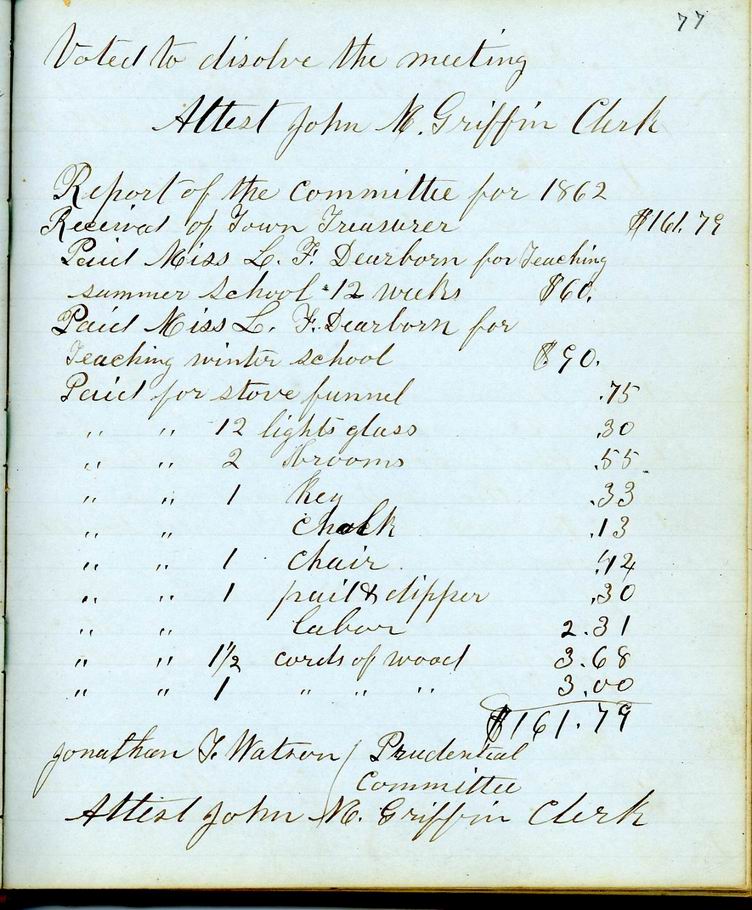 77
Voted to disolve the meeting
Attest John M. Griffin Clerk
Report of the committee for 1862
Received of Town Treasurer $161.79
Paid Miss L. F. Dearborn for Teaching
summer school 12 weeks $60.
Paid Miss L. F. Dearborn for
Teaching winter school $90.
Paid for stove funnel .75
" " 12 lights glass .30
" " 2 brooms .55
" " 1 key .33
" " chalk .13
" " 1 chair .42
" " 1 pail & dipper .30
" " labor 2.31
" " 1 1/2 cords of wood 3.68
" " 1 " " " 3.00
$161.79
Jonathan T. Watson ( Prudential
Committee
Attest John M. Griffin Clerk